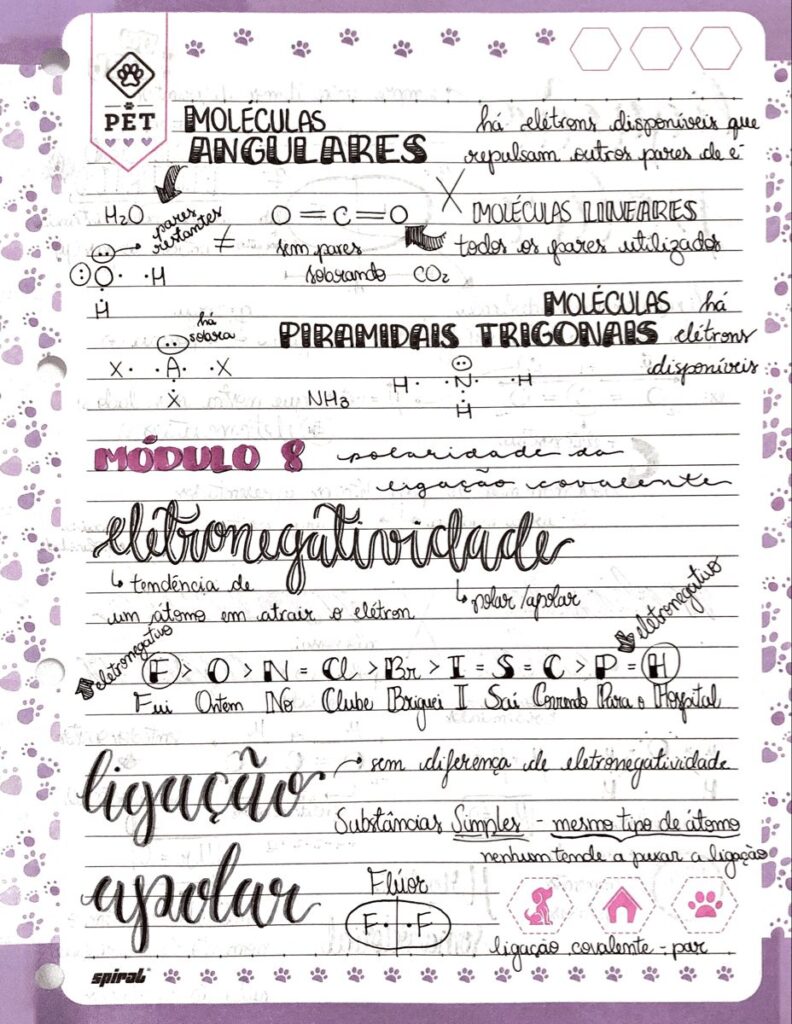 PET
MOLÉCULAS
ANGULARES
há elétrons disponíveis que
repulsam outros pares de é
H₂O
pares
restantes
≠
O = C = O
sem pares
sobrando CO₂
X MOLÉCULAS LINEARES
todos os pares utilizados
O · · H
H
MOLÉCULAS há
PIRAMIDAIS TRIGONAIS elétrons
disponíveis
há
sobra
X · · A · · X
X
NH₃
H · · N · · H
H
MÓDULO 8 polaridade da
ligação covalente
eletronegatividade
↳ tendência de
um átomo em atrair o elétron
↳ polar/apolar
eletronegativo
eletronegativo
F > O > N = Cl > Br > I = S = C > P = H
Fui Ontem No Clube Briguei I Saí Correndo Para o Hospital
ligação
apolar
→ sem diferença de eletronegatividade
Substâncias Simples - mesmo tipo de átomo
nenhum tende a puxar a ligação
Flúor
F · · F
ligação covalente - par
spiral